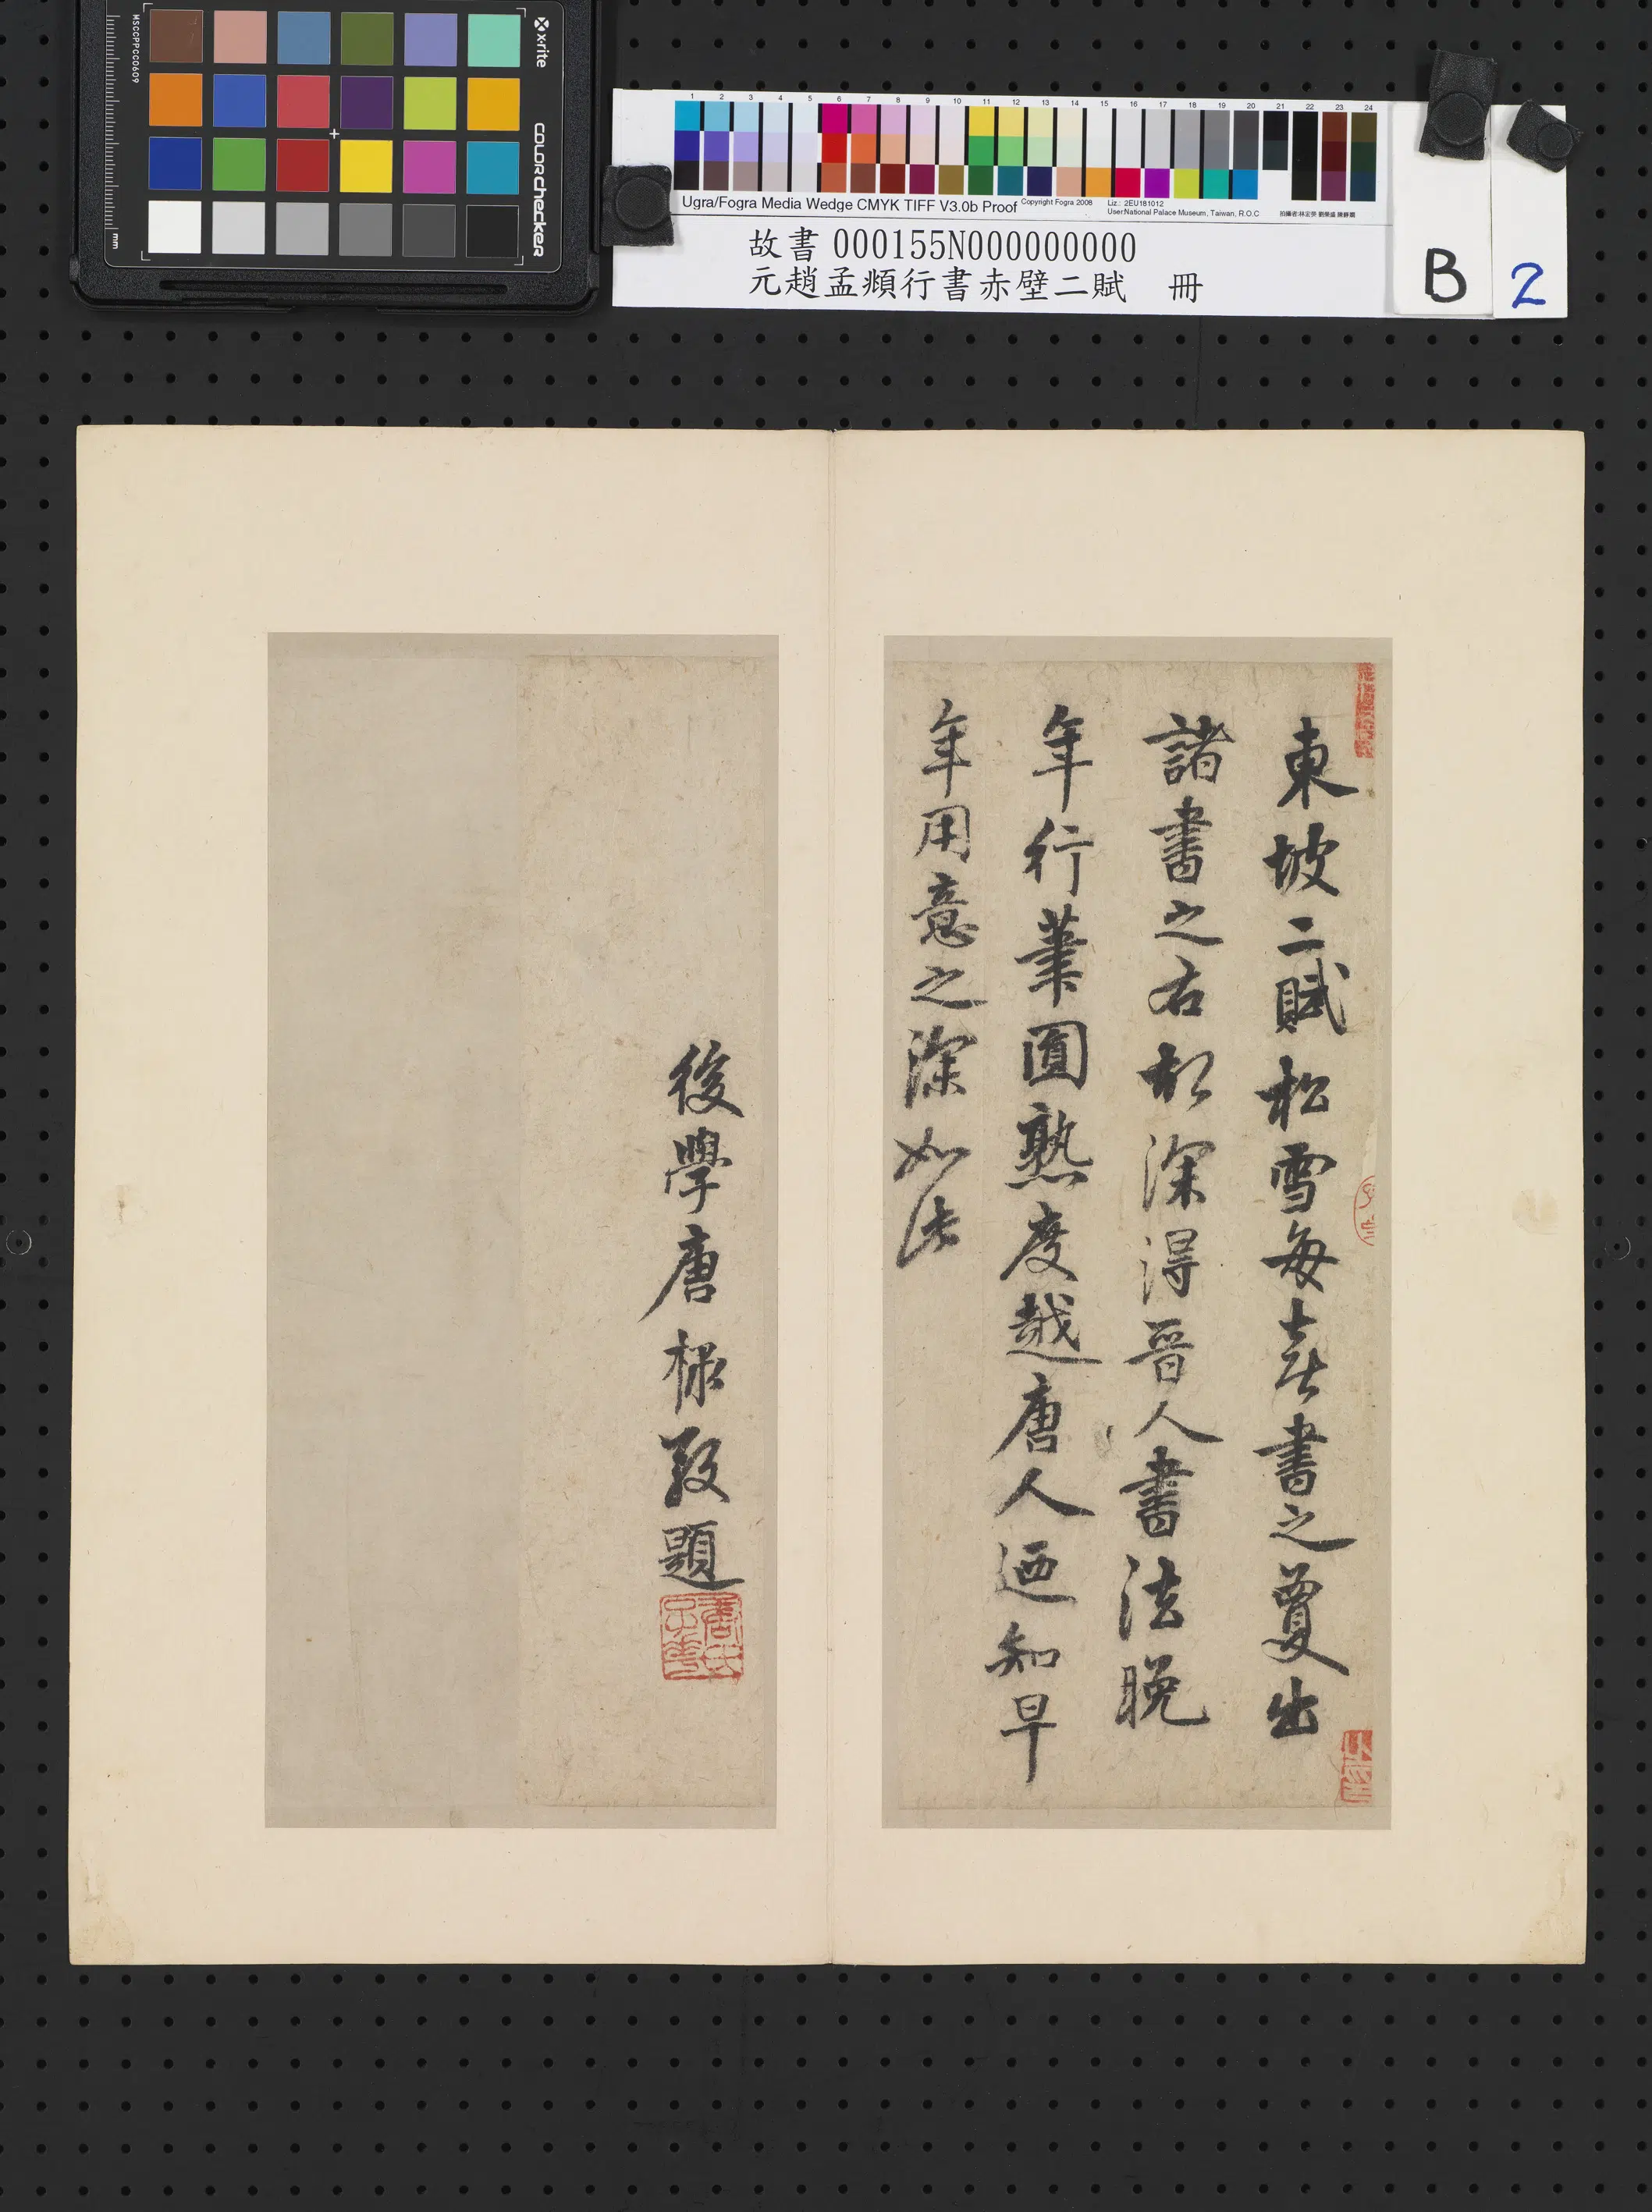 MSCCPPCC0609
mm
x-rite
colorchecker
1 2 3 4 5 6 7 8 9 10 11 12 13 14 15 16 17 18 19 20 21 22 23 24
Ugra/Fogra Media Wedge CMYK TIFF V3.0b Proof
Copyright Fogra 2008
Liz.: 2EU181012
User:National Palace Museum, Taiwan, R.O.C
故書 000155N000000000
元趙孟頫行書赤壁二賦 冊
B
2
東坡二賦松雪每喜書之夐出
諸書之右初深得晉人書法晚
年行筆圓熟度越唐人迺知早
年用意之深如此
後學唐棣敬題
唐氏子華